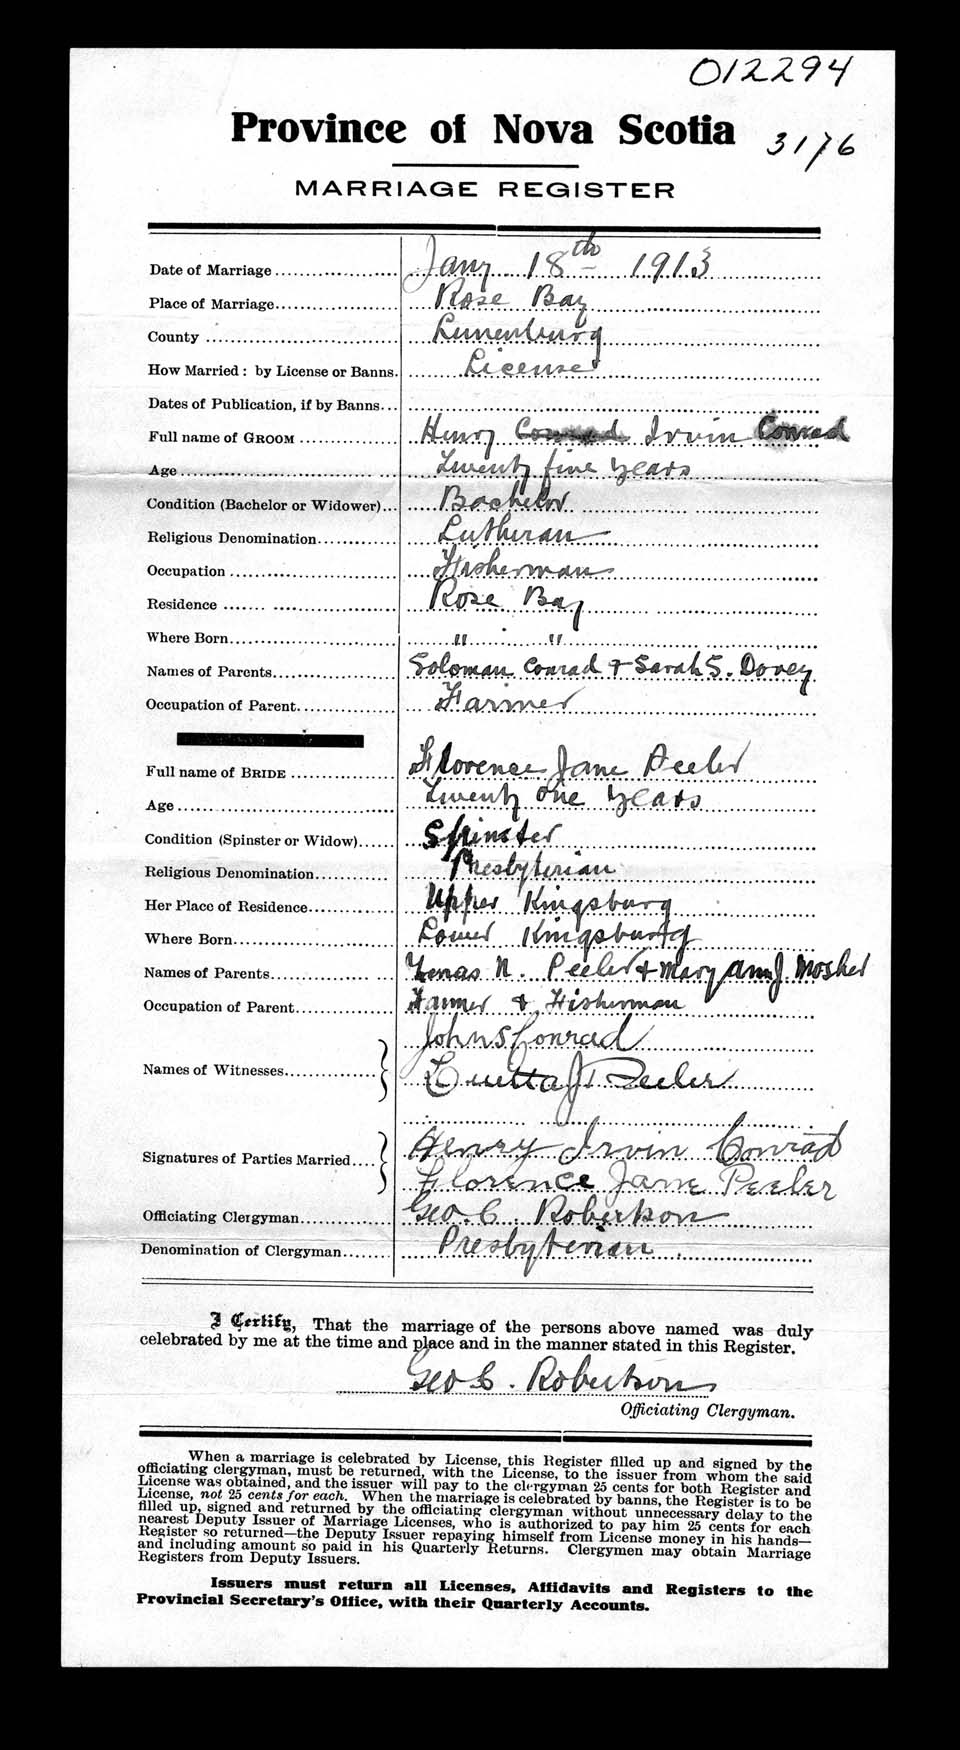 012294
Province of Nova Scotia
3176
MARRIAGE REGISTER
Date of Marriage Jany 18th 1913
Place of Marriage Rose Bay
County Lunenburg
How Married: by License or Banns. License
Dates of Publication, if by Banns
Full name of GROOM Henry Conrad Irvin Conrad
Age Twenty five years
Condition (Bachelor or Widower) Bachelor
Religious Denomination Lutheran
Occupation Fisherman
Residence Rose Bay
Where Born " "
Names of Parents Soloman Conrad & Sarah S. Dovey
Occupation of Parent Farmer
Full name of BRIDE Florence Jane Peeler
Age Twenty one years
Condition (Spinster or Widow) Spinster
Religious Denomination Presbyterian
Her Place of Residence Upper Kingsburg
Where Born Lower Kingsburg
Names of Parents Zenas N. Peeler & Mary Ann J. Mosher
Occupation of Parent Farmer & Fisherman
Names of Witnesses John S Conrad
J Peeler
Signatures of Parties Married Henry Irvin Conrad
Florence Jane Peeler
Officiating Clergyman Geo. C. Robertson
Denomination of Clergyman Presbyterian
I Certify, That the marriage of the persons above named was duly
celebrated by me at the time and place and in the manner stated in this Register.
Geo C. Robertson
Officiating Clergyman.
When a marriage is celebrated by License, this Register filled up and signed by the
officiating clergyman, must be returned, with the License, to the issuer from whom the said
License was obtained, and the issuer will pay to the clergyman 25 cents for both Register and
License, not 25 cents for each. When the marriage is celebrated by banns, the Register is to be
filled up, signed and returned by the officiating clergyman without unnecessary delay to the
nearest Deputy Issuer of Marriage Licenses, who is authorized to pay him 25 cents for each
Register so returned—the Deputy Issuer repaying himself from License money in his hands—
and including amount so paid in his Quarterly Returns. Clergymen may obtain Marriage
Registers from Deputy Issuers.
Issuers must return all Licenses, Affidavits and Registers to the
Provincial Secretary's Office, with their Quarterly Accounts.